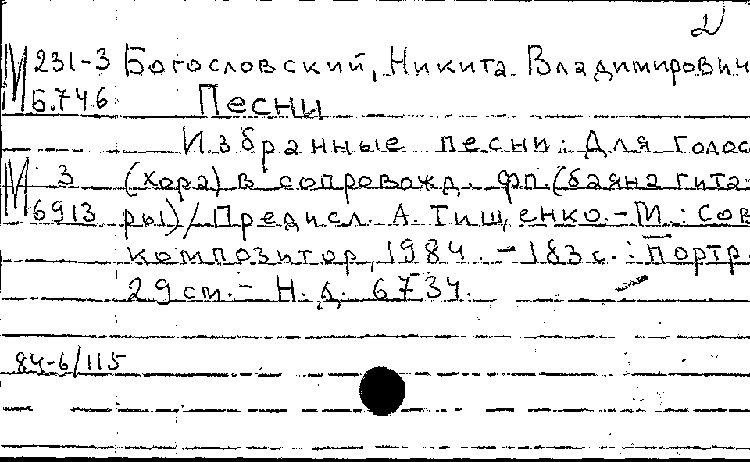 2
М 231-3 Богословский, Никита Владимирович
Б.746 Песни
Избранные песни: Для голос
М 3 (хора) в сопровожд. фп. (баяна гита-
6913 ры) / Предисл. А. Тищенко. - М.: Сов
композитор, 1984. - 183 с.: портр.
29 см. - Н. д. 6734.
84-6/115